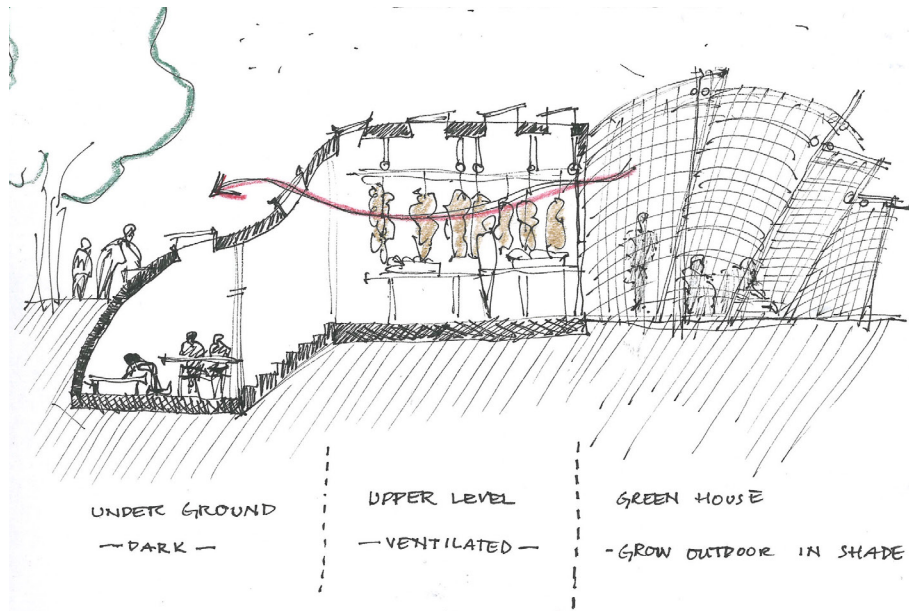 UNDER GROUND
— DARK —
UPPER LEVEL
— VENTILATED —
GREEN HOUSE
- GROW OUTDOOR IN SHADE